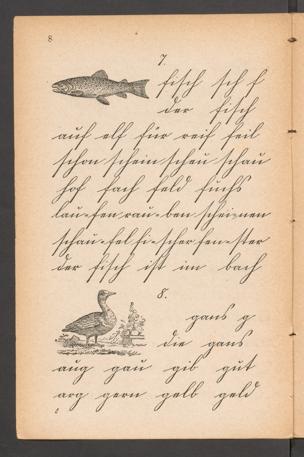 8
7.
fisch sch f
der fisch
auf elf für reif feil
schon schein scheu schau
hof fach feld fuchs
lau-fen rau-ben schei-nen
schau-fel fi-scher fen-ster
der fisch ist im bach
8.
gans g
die gans
aug gau gib gut
arg gern gelb geld